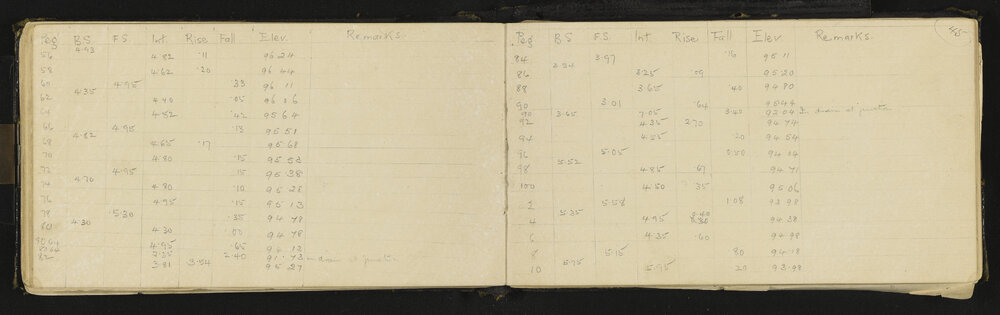 Peg BS F.S. Int Rise Fall Elev. Remarks
4.93
56 4.82 .11 95 24
58 4.62 .20 96 44
60 4.95 .33 96 11
4.35
62 4.40 .05 96 06
64 4.82 .42 95 64
66 4.95 .13 95 51
4.82
68 4.65 .17 95 68
70 4.80 .15 95 53
72 4.95 .15 95 38
4.70
74 4.80 .10 95 28
76 4.95 .15 95 13
78 5.30 .35 94 78
4.30
80 4.30 .00 94 78
4.95 .65 94 13
2.35 2.40 91.73 in drain at junction
82 3.81 3.54 95 27
Peg BS F.S. Int Rise Fall Elev Remarks
84 3.97 .16 95 11
3.34
86 3.25 .09 95 20
88 3.65 .40 94 80
90 3.01 .64 95 44
3.65
90 7.05 3.40 92 04 In drain at junction
92 4.35 2.70 94 74
94 4.55 .20 94 54
96 5.05 0.50 94 04
5.52
98 4.85 .67 94 71
100 4.50 .35 95 06
2 5.58 1.08 93 98
5.35
4 4.95 0.40 94 38
6 4.35 .60 94 98
8 5.15 80 94 18
5.75
10 5.95 20 93.98